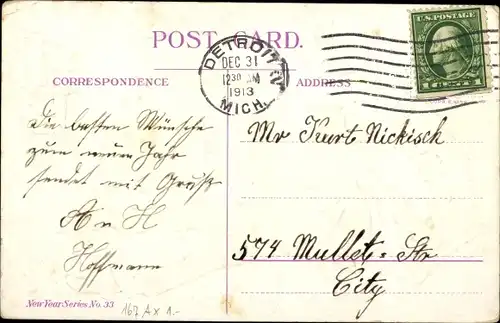 POST CARD.
DETROIT
DEC 31
12 30 AM
1913
MICH.
U.S. POSTAGE
CORRESPONDENCE
ADDRESS
Die besten Wünsche
zum neuen Jahr
sendet mit Gruß
A u H
Hoffmann
Mr Kurt Nickisch
574 Mullet-Str
City
New Year Series No. 33
167 A x 1.-